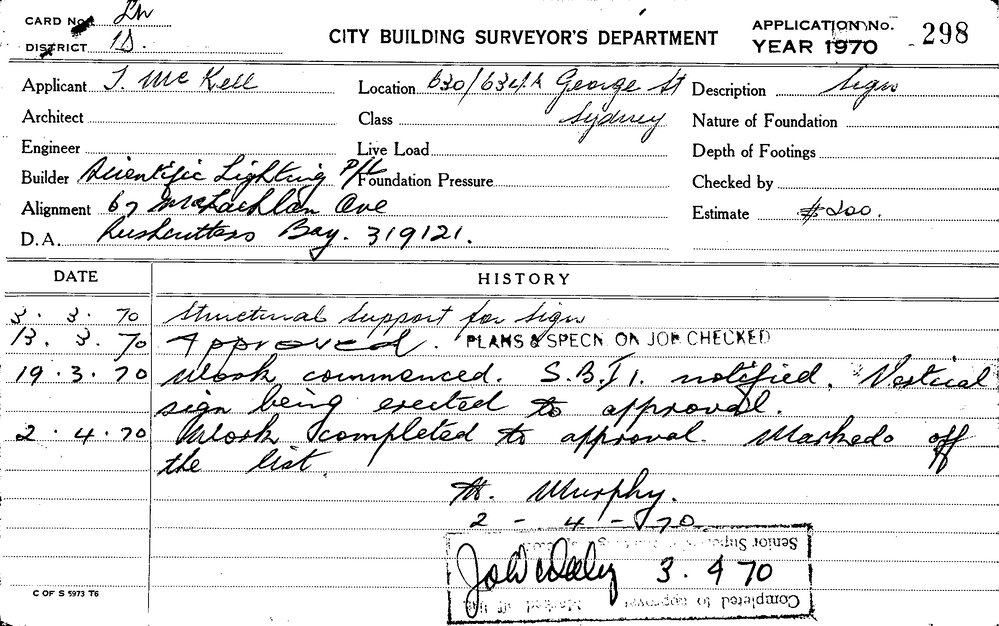 CARD No. Ln
DISTRICT 1D.
CITY BUILDING SURVEYOR'S DEPARTMENT
APPLICATION No.
YEAR 1970
298
Applicant J. McKell
Location 630/634A George St
Description Sign
Architect
Class Sydney
Nature of Foundation
Engineer
Live Load
Depth of Footings
Builder Scientific Lighting P/L
Foundation Pressure
Checked by
Alignment 67 McLachlan Ave
Estimate $200.
D.A. Rushcutters Bay. 319121.
DATE
HISTORY
3. 3. 70 Structural support for sign
13. 3. 70 Approved. PLANS & SPECN ON JOB CHECKED
19. 3. 70 Work commenced. S.B.I. notified. Vertical
sign being erected to approval.
2. 4. 70 Work completed to approval. Marked off
the list.
Murphy.
2 - 4 - 70
Senior
3. 4 70
Completed to approval Marked off list
C OF S 5973 T6